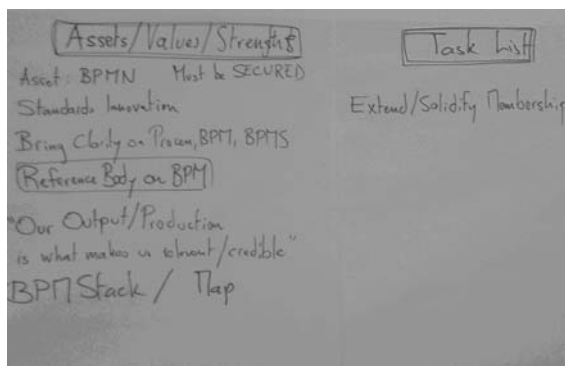 Assets/Values/Strengths
Asset: BPMN Must be SECURED
Standards Innovation
Bring Clarity on Process, BPM, BPMS
Reference Body on BPM
"Our Output/Production
is what makes us relevant/credible"
BPM Stack / Map
Task List
Extend/Solidify Membership